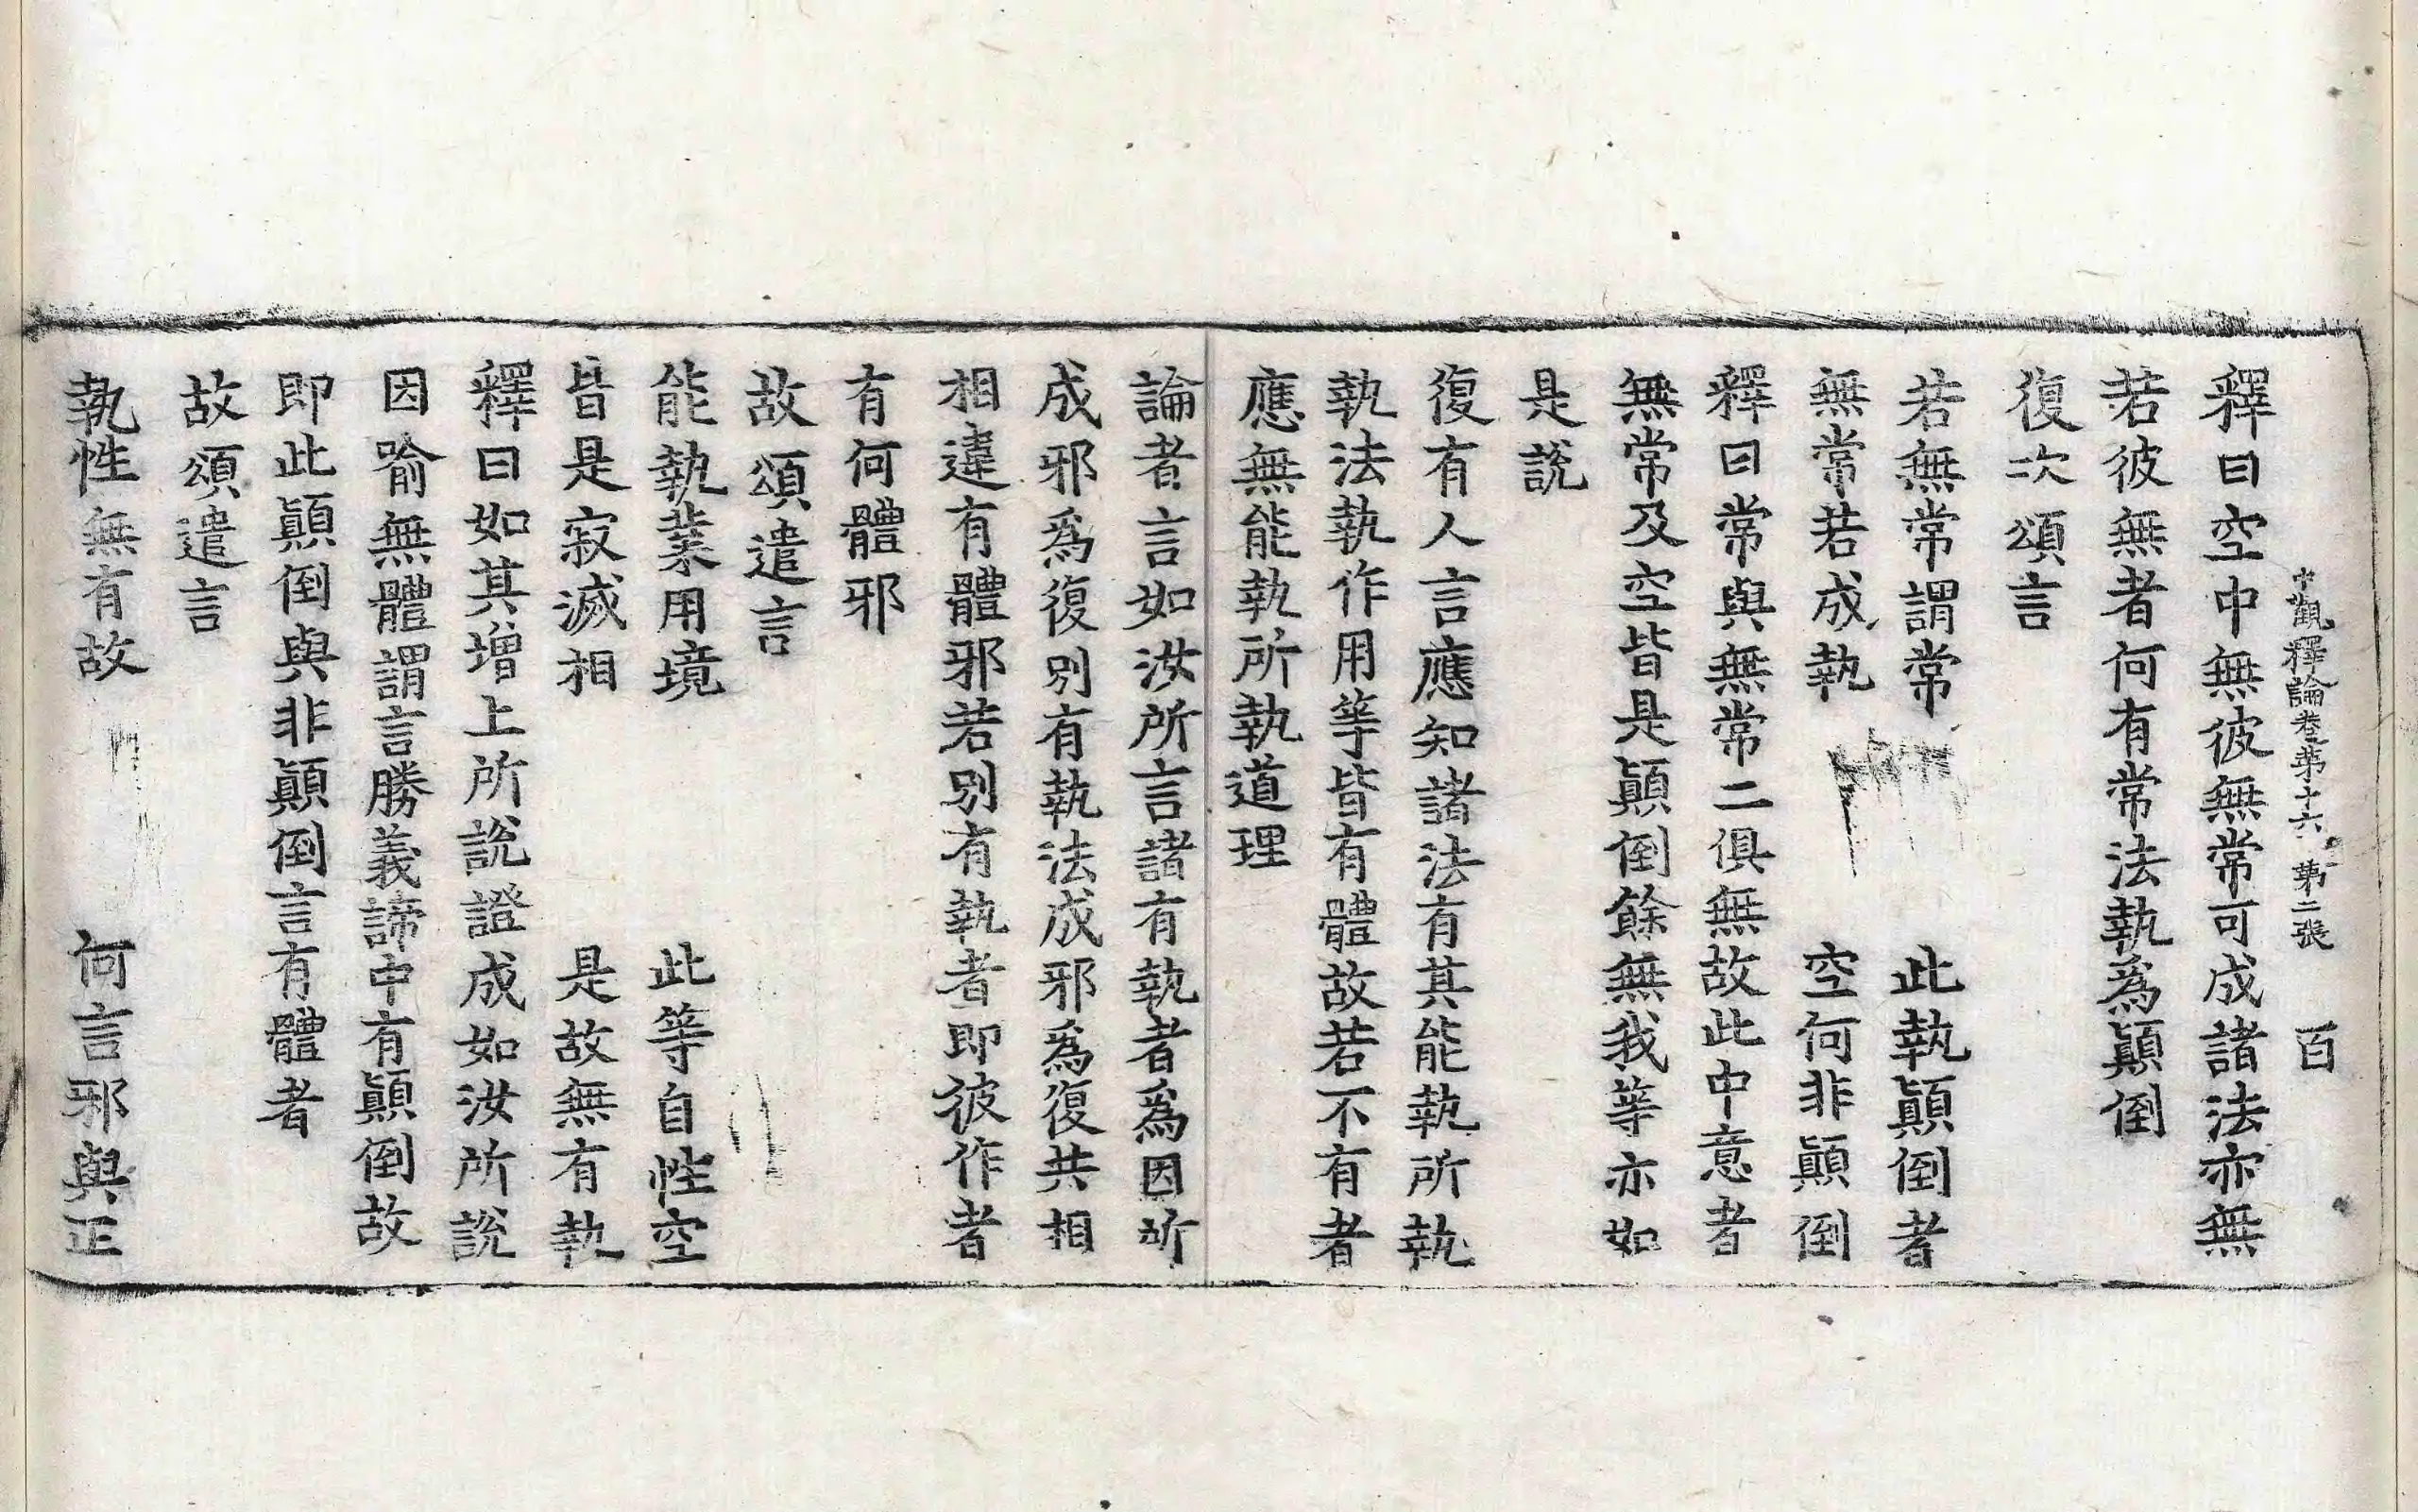 中觀釋論卷第十六 第二張 百
釋曰空中無彼無常可成諸法亦無
若彼無者何有常法執為顛倒
復次頌言
若無常謂常 此執顛倒者
無常若成執 空何非顛倒
釋曰常與無常二俱無故此中意者
無常及空皆是顛倒餘無我等亦如
是說
復有人言應知諸法有其能執所執
執法執作用等皆有體故若不有者
應無能執所執道理
論者言如汝所言諸有執者爲因所
成邪爲復別有執法成邪爲復共相
相違有體邪若別有執者即彼作者
有何體邪
故頌遣言
能執業用境 此等自性空
皆是寂滅相 是故無有執
釋曰如其增上所說證成如汝所說
因喻無體謂言勝義諦中有顛倒故
即此顛倒與非顛倒言有體者
故頌遣言
執性無有故 何言邪與正